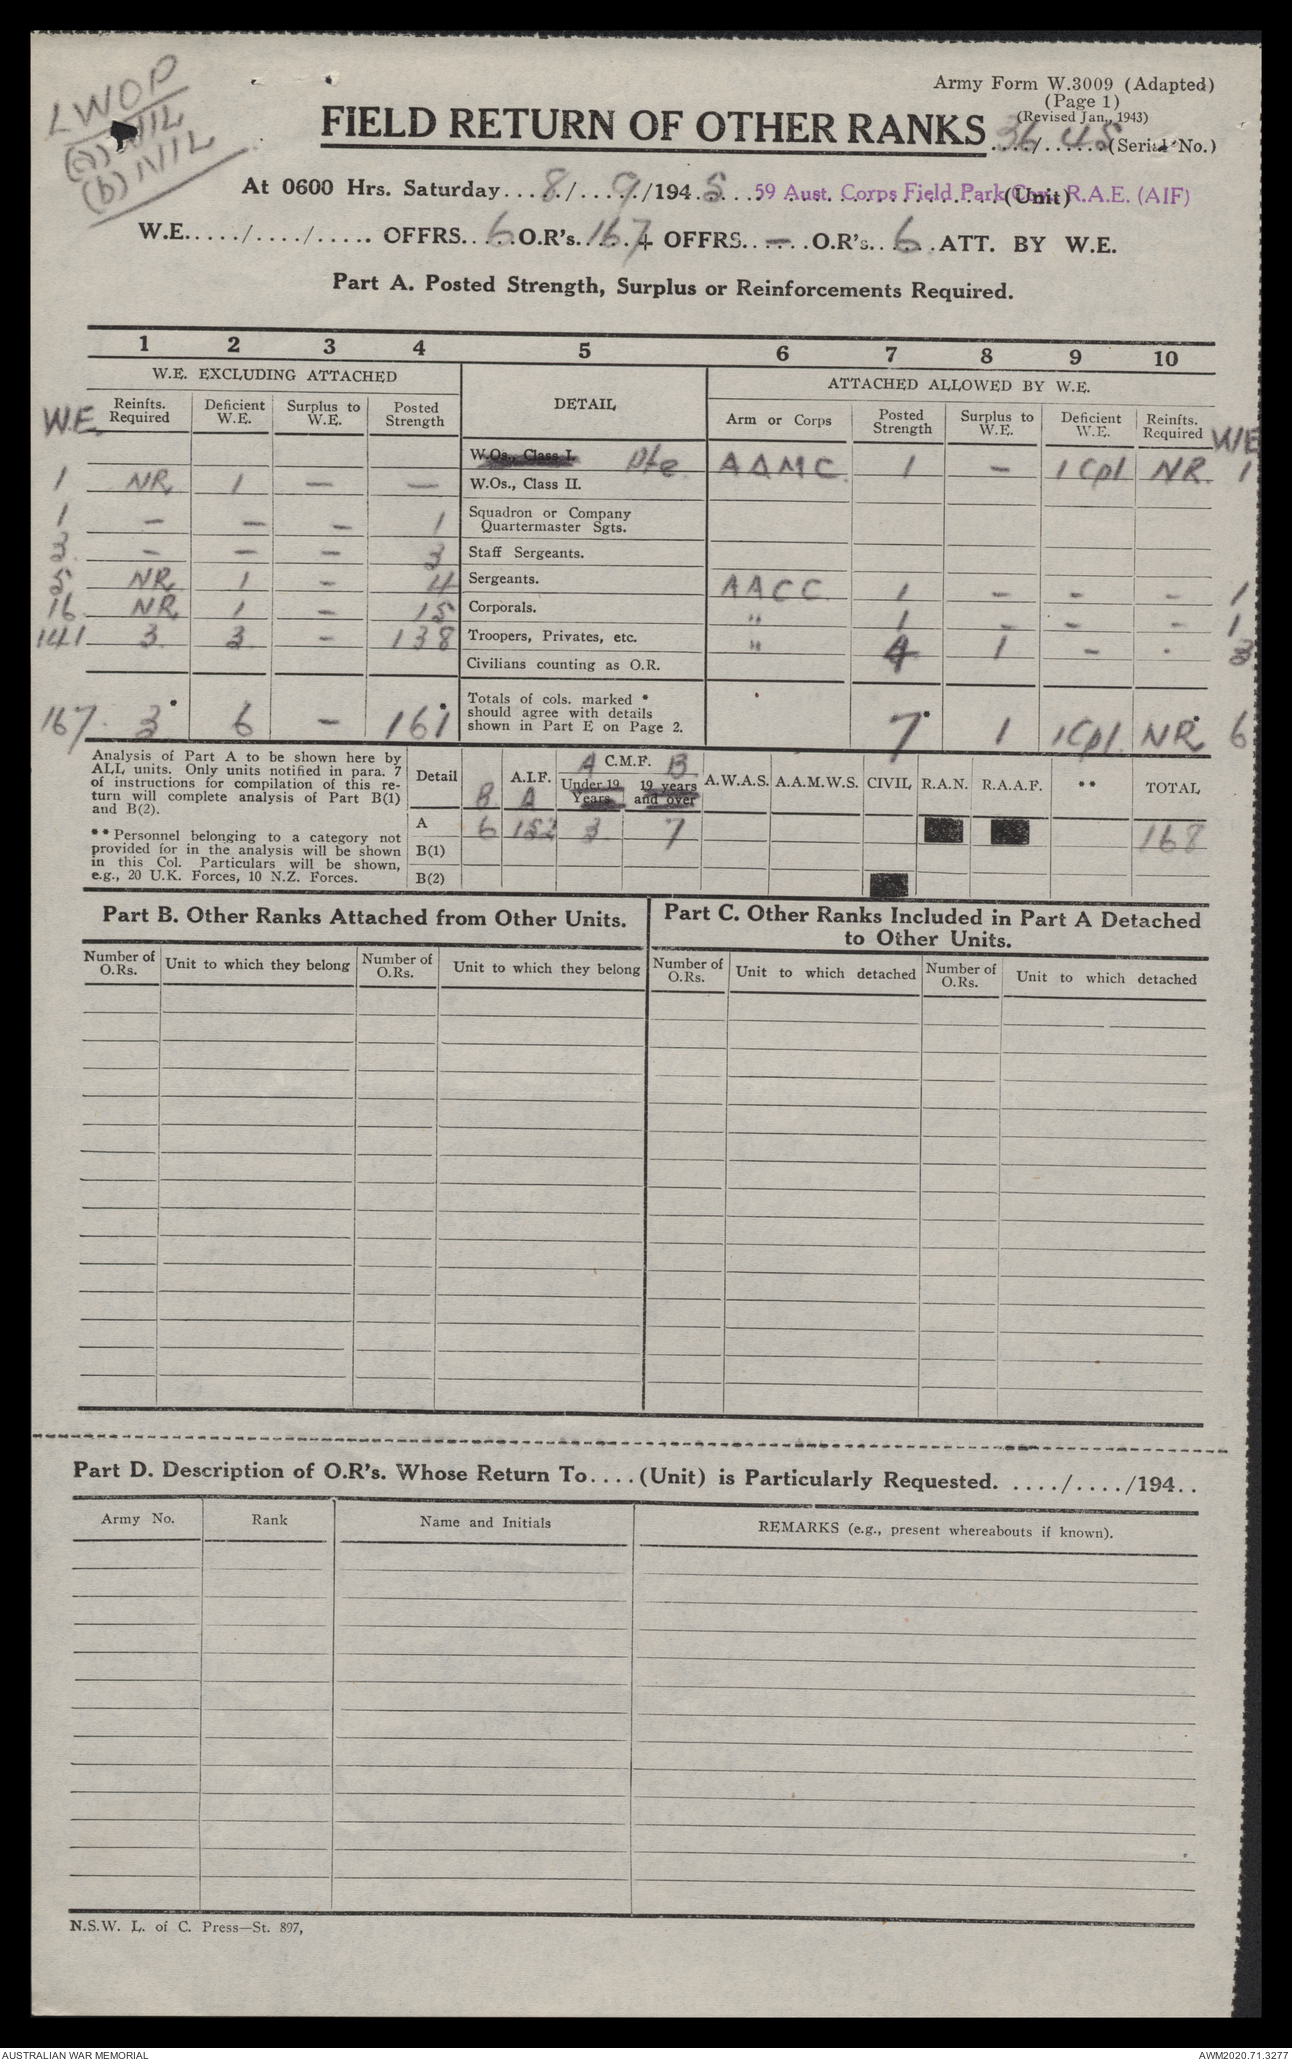 LWOP
(a) NIL
(b) NIL
Army Form W.3009 (Adapted)
(Page 1)
(Revised Jan., 1943)
FIELD RETURN OF OTHER RANKS 36/45 (Serial No.)
At 0600 Hrs. Saturday....8/....9/194 5... 59 Aust. Corps Field Park Coy. R.A.E. (AIF) (Unit)
W.E...../..../..... OFFRS. 6 O.R's. 167 + OFFRS. — O.R's. 6 ATT. BY W.E.
Part A. Posted Strength, Surplus or Reinforcements Required.
1 2 3 4 5 6 7 8 9 10
W.E. EXCLUDING ATTACHED DETAIL ATTACHED ALLOWED BY W.E.
W.E. Reinfts. Required Deficient W.E. Surplus to W.E. Posted Strength Arm or Corps Posted Strength Surplus to W.E. Deficient W.E. Reinfts. Required WE
W.Os., Class I. Pte AAMC 1 — 1 Cpl NR. 1
1 NR 1 — — W.Os., Class II.
1 — — — 1 Squadron or Company Quartermaster Sgts.
3 — — — 3 Staff Sergeants.
5 NR 1 — 4 Sergeants. AACC 1 — — — 1
16 NR 1 — 15 Corporals. " 1 — — — 1
141 3 3 — 138 Troopers, Privates, etc. " 4 1 — . 3
Civilians counting as O.R.
167 3* 6 — 161* Totals of cols. marked * should agree with details shown in Part E on Page 2. 7* 1 1 Cpl. NR* 6
Analysis of Part A to be shown here by
ALL units. Only units notified in para. 7
of instructions for compilation of this re-
turn will complete analysis of Part B(1)
and B(2).
** Personnel belonging to a category not
provided for in the analysis will be shown
in this Col. Particulars will be shown,
e.g., 20 U.K. Forces, 10 N.Z. Forces.
Detail A.I.F. B A A C.M.F. B Under 19 Years 19 years and over A.W.A.S. A.A.M.W.S. CIVIL R.A.N. R.A.A.F. ** TOTAL
A 6 152 3 7 168
B(1)
B(2)
Part B. Other Ranks Attached from Other Units.
Number of O.Rs. Unit to which they belong Number of O.Rs. Unit to which they belong
Part C. Other Ranks Included in Part A Detached
to Other Units.
Number of O.Rs. Unit to which detached Number of O.Rs. Unit to which detached
Part D. Description of O.R's. Whose Return To....(Unit) is Particularly Requested. ..../..../194..
Army No. Rank Name and Initials REMARKS (e.g., present whereabouts if known).
N.S.W. L. of C. Press—St. 897,
AUSTRALIAN WAR MEMORIAL AWM2020.71.3277